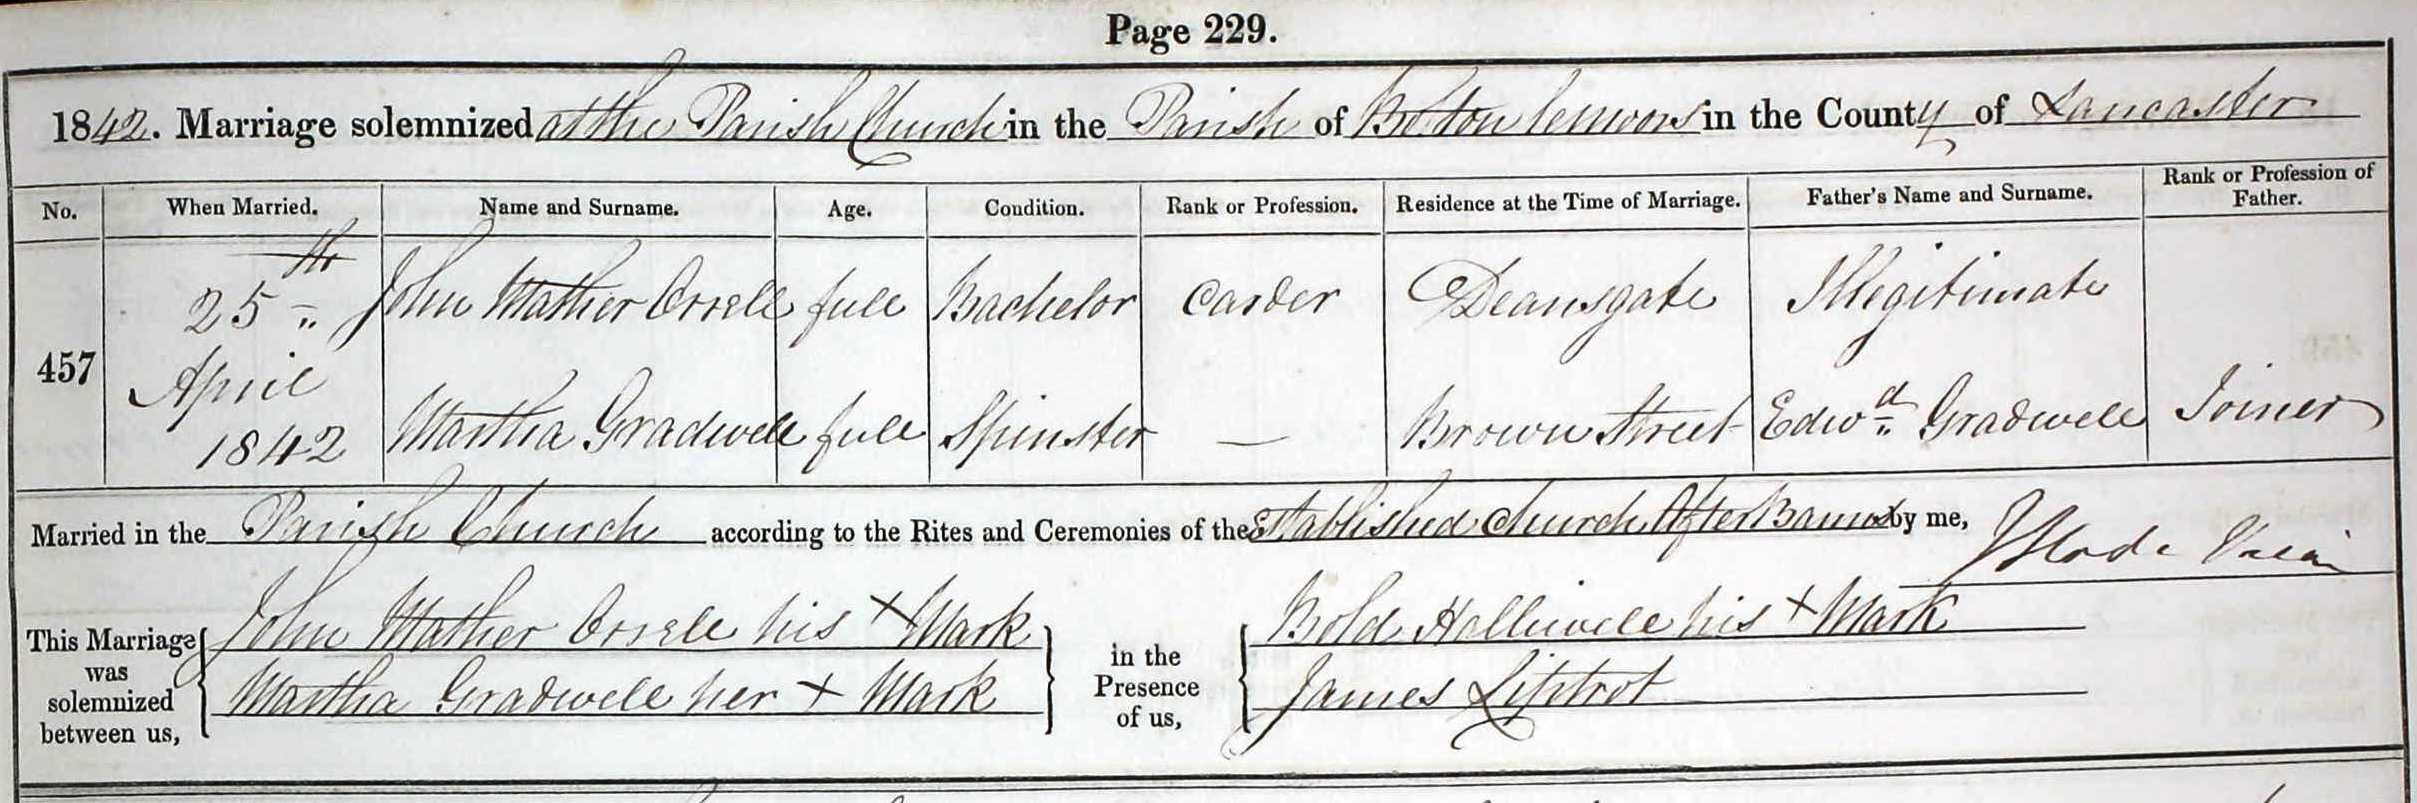 Page 229.
1842. Marriage solemnized at the Parish Church in the Parish of Bolton lemoors in the County of Lancaster
No. When Married. Name and Surname. Age. Condition. Rank or Profession. Residence at the Time of Marriage. Father's Name and Surname. Rank or Profession of Father.
457 25th April 1842
John Mather Orrell full Bachelor Carder Deansgate Illegitimate
Martha Gradwell full Spinster — Brown Street Edwd Gradwell Joiner
Married in the Parish Church according to the Rites and Ceremonies of the Established Church After Banns by me, Slade
This Marriage was solemnized between us, John Mather Orrell his X Mark
Martha Gradwell her X Mark
in the Presence of us, Bold Halliwell his X Mark
James Liptrot